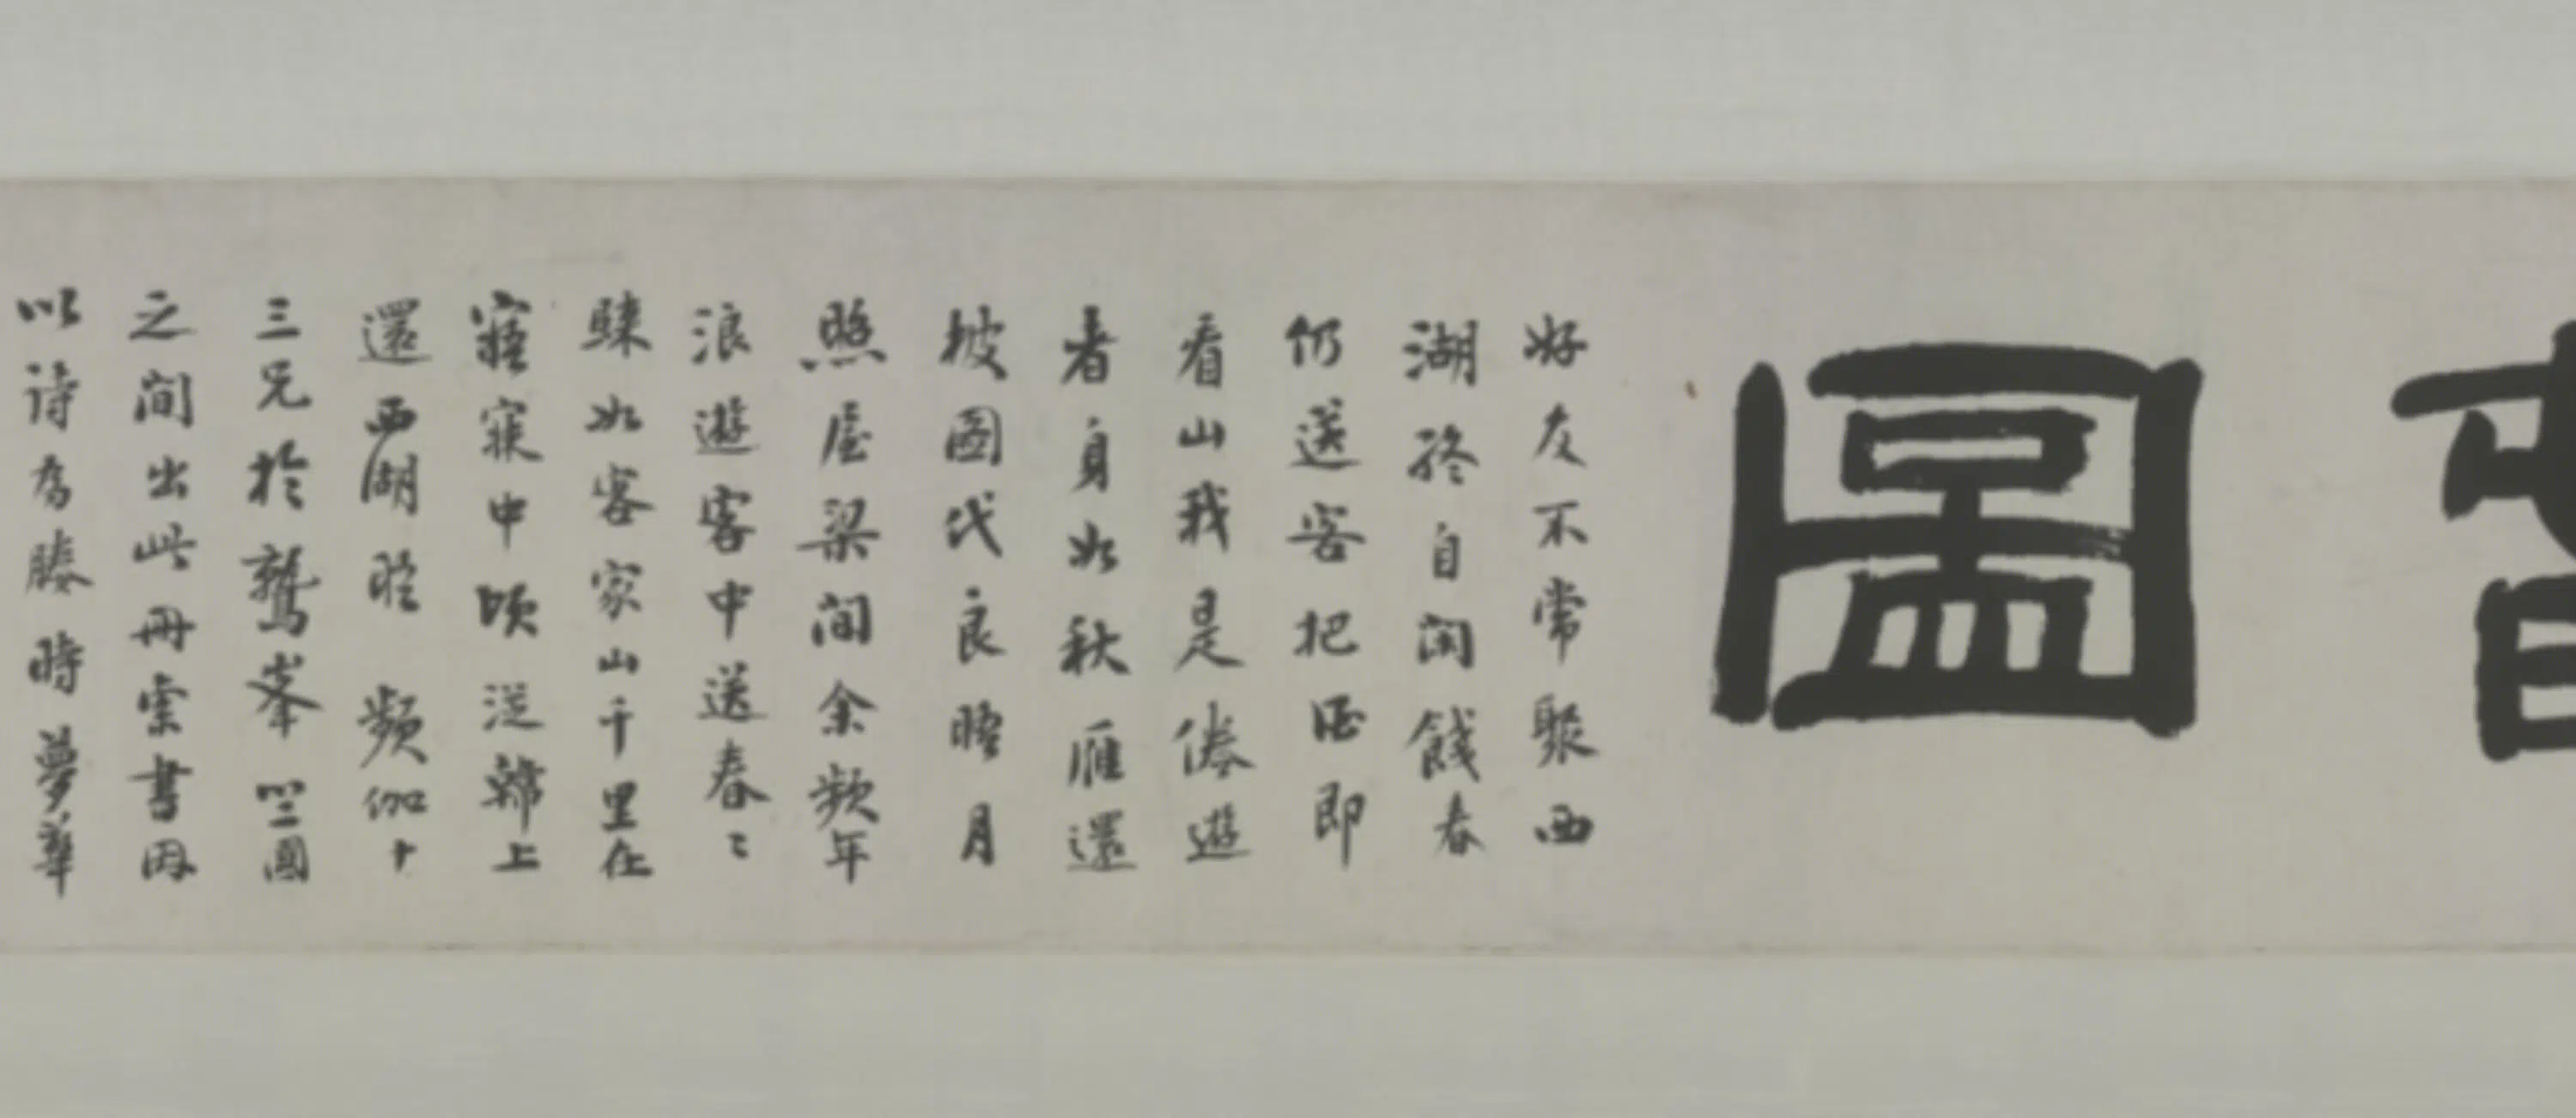 圖
好友不常聚西
湖終自閑餞春
仍送客把酒即
看山我是倦遊
者身如秋雁還
披圖代良晤月
照屋梁間余頻年
浪遊客中送春〻
歸如客家山千里在
寤寐中頃從鄂上
還西湖晤 頻伽十
三兄於鷲峯竺國
之間出此冊索書因
以詩為媵時夢華